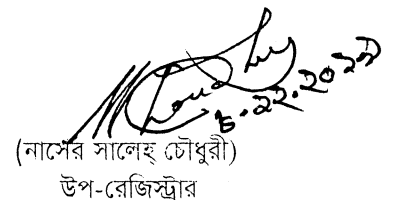 ৮.১২.২০১৯
(নাসের সালেহ্ চৌধুরী)
উপ-রেজিস্ট্রার